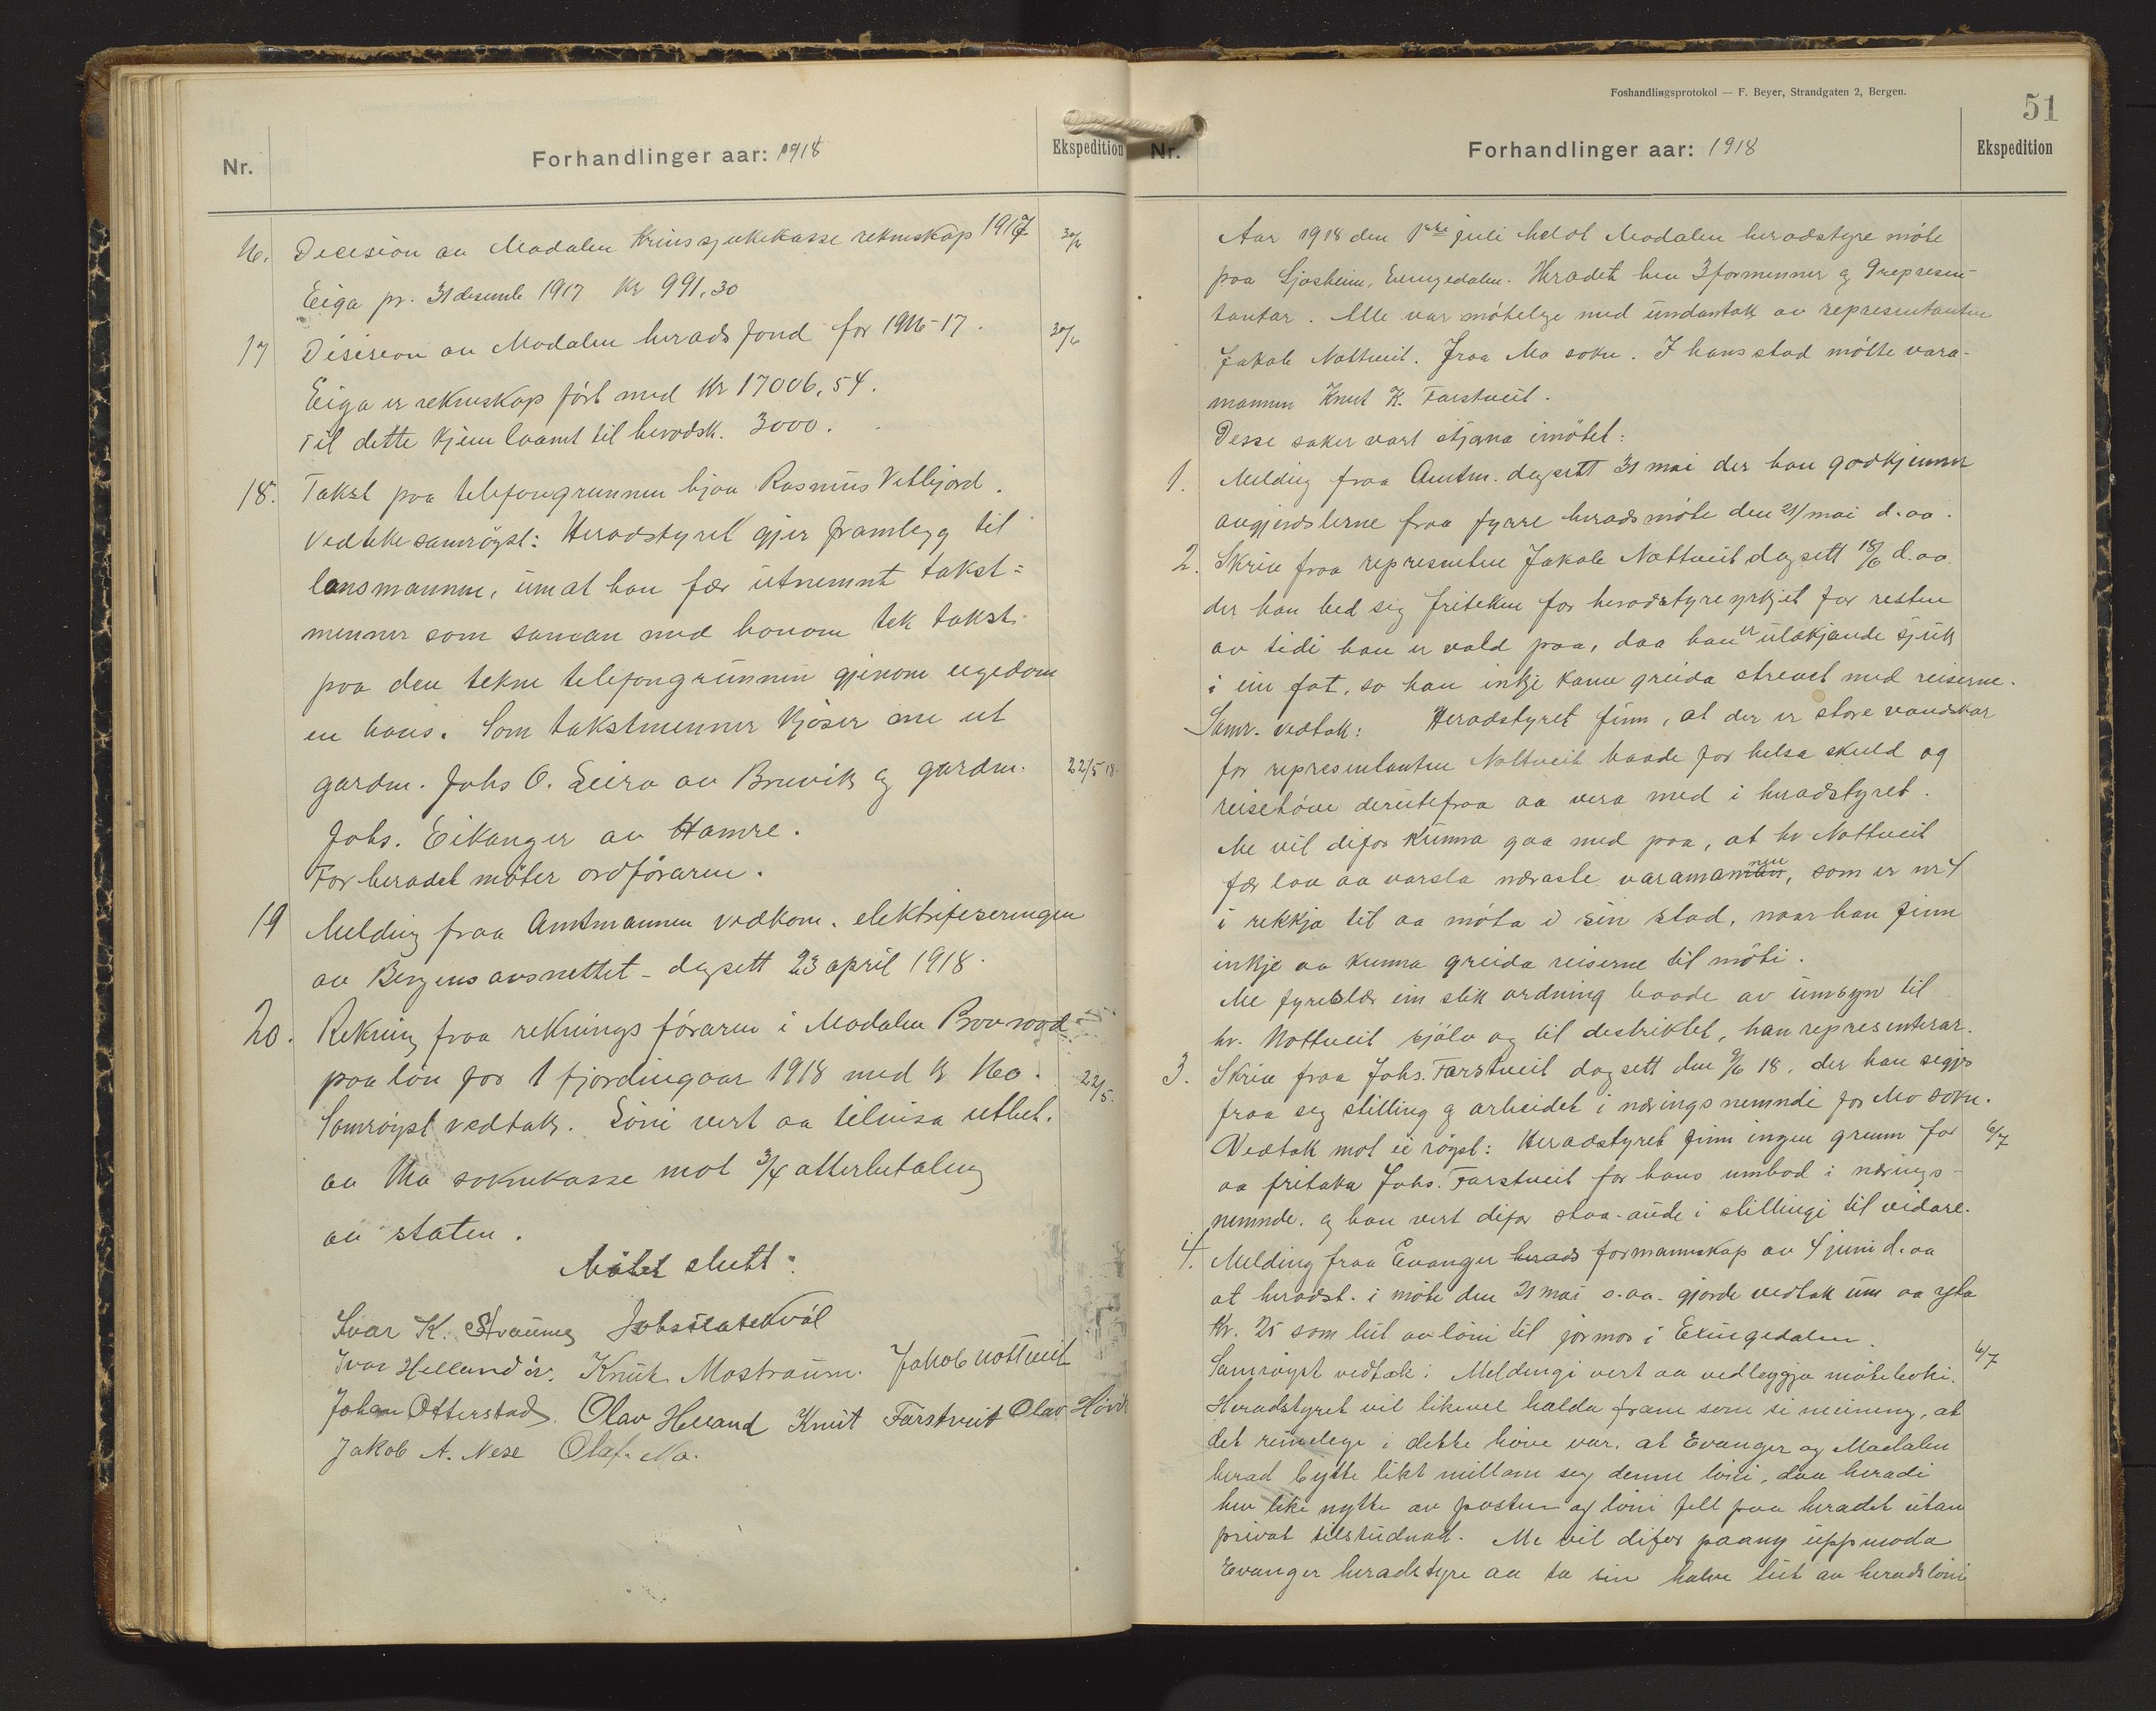 Nr.
Forhandlinger aar: 1918
Ekspedition
16. Decision av Modalen Krinssjukekasse rekneskap 1917 30/6
Eiga pr. 31 desemb 1917 Kr 991,30
17 Disision av Modalen herads fond for 1916-17. 30/6
Eiga er rekneskap fört med Kr 17006,54.
Til dette kjem laant til heradsk. 3000.
18. Takst paa telefongrunnen hjaa Rasmus Vetlejord.
Vedteke samrøyst: Heradstyret gjer framlegg til
lensmannen, um at han fær utnemnt takst=
menner som saman med honom tek takst
paa den tekne telefongrunnen gjenom eigedom
en hans. Som takstmenner kjöser me ut
gardm. Johs O. Leiro av Bruvik og gardm. 22/5 18.
Johs. Eikanger av Hamre.
For heradet möter ordföraren.
19 Melding fraa Amtmannen vedkom. elektrifiseringen
av Bergensavsnettet - dagsett 23 april 1918.
20. Rekning fraa reknings föraren i Modalen Brorson
paa lön for 1 fjordingaar 1918 med kr 160. 22/5.
Samröyst vedtak. Löni vert aa tilvisa utbet.
av Mo soknekasse mot 3/4 atterbetaling
av staten.
Mötet slutt:
Ivar K. Straume
Ivar Helland ör. Knut Mostraum. Jakob Nottveit
Johan Otterstad. Olav Helland Knut Farstveit Olav Hövik
Jakob A. Nese Olaf. Mo.
Foshandlingsprotokol — F. Beyer, Strandgaten 2, Bergen.
51
Nr.
Forhandlinger aar: 1918
Ekspedition
Aar 1918 den 1ste juli heldt Modalen heradstyre möte
paa Sjosheim, Eksingedalen. Heradet hev 3 formenner og 9 represen-
tantar. Alle var mötelege med undantak av representanten
Jakob Nottveit. Fraa Mo sokn. I hans stad mötte vara-
mannen Knut K. Farstveit.
Desse saker vart stjana i mötet:
1. Melding fraa Amtm. dagsett 31 mai der han godkjenner
avgjerdslerne fraa fyrre heradsmöte den 21/ mai d. aa.
2. Skriv fraa represnten Jakob Nottveit dagsett 18/6 d. aa.
der han bed seg friteken for heradstyreyrkjet for resten
av tidi han er vald paa, daa han er ulækjande sjuk
i ein fot, so han inkje kann greida strevet med reiserne.
Samr. vedtak: Heradstyret finn, at der er store vandskar
for representanten Nottveit baade for helsa skuld og
reisehöve derutefraa aa vera med i heradstyret.
Me vil difor kunna gaa med paa, at hr Nottveit
fær lov aa varsla næraste varamannen, som er nr 4
i rekkja til aa möta i sin stad, naar han finn
inkje aa kunna greida reiserne til möti.
Me fyreslær ein slik ordning baade av umsyn til
hr. Nottveit sjölv og til destriktet, han representerar.
3. Skriv fraa Johs. Farstveit dagsett den 9/6 18, der han segjo
fraa seg stilling og arbeidet i næringsnemndi for Mo sokn.
Vedtak mot ei röyst: Heradstyret finn ingen grunn for 6/7
aa fritaka Johs. Farstveit for hans umbod i nærings-
nemnde. og han vert difor staa-ande i stillingi til vidare.
4. Melding fraa Evanger herads formannskap av 4 juni d. aa
at heradst. i möte den 21 mai s. aa. gjorde vedtak um aa yta
Kr. 25 som lut av löni til jormor i Eksingedalen. 6/7
Samröyst vedtak: Meldingi vert aa vedleggja möteboki.
Heradstyret vil likevel halda fram som si meining, at
det rimelege i dette höve var, at Evanger og Modalen
herad bytte likt millom seg denne löni, daa heradi
hev like nytte av posten og löni fell paa heradet utan
privat tilstudnad. Me vil difor paany uppmoda
Evanger heradstyre aa ta sin halve lut av heradslöni